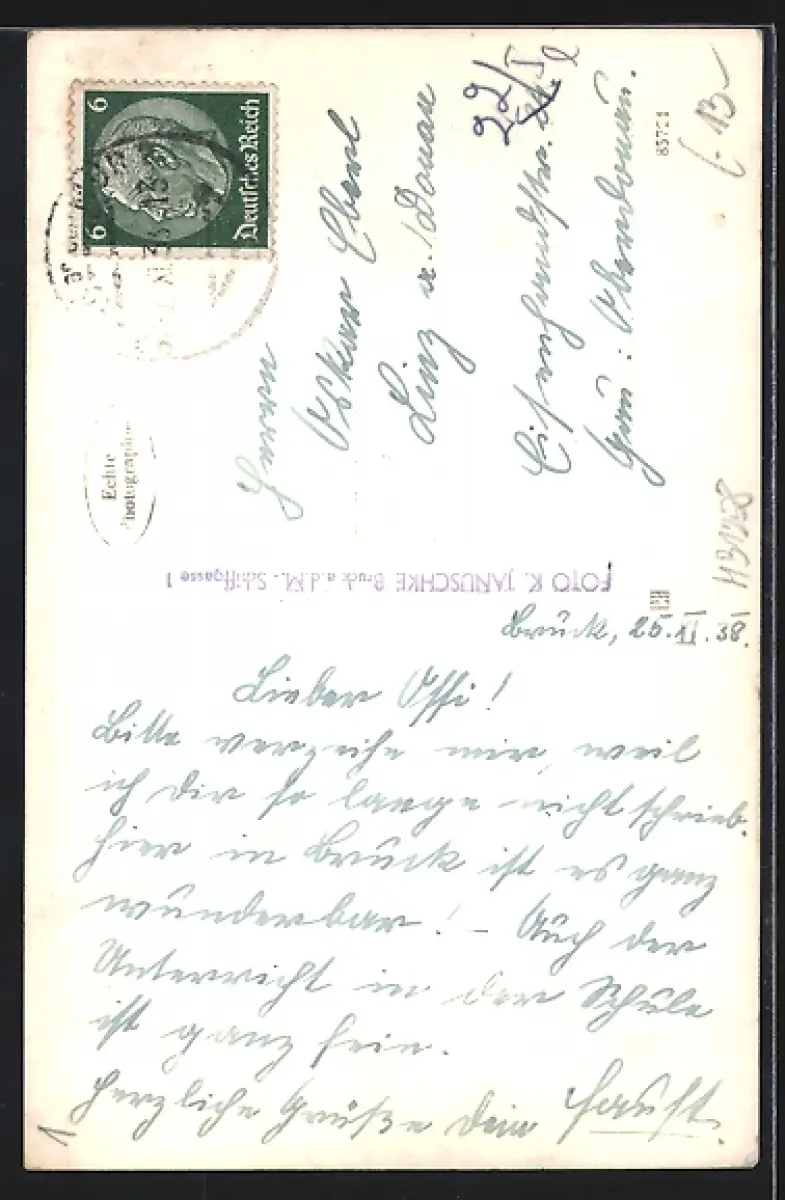 6 6
Deutsches Reich
22/I
l
(-13-
85721
Herrn
Oskar Eberl
Linz a./Donau
Gau: Oberdonau.
Echte
Photographie
FOTO K. JANUSCHKE Bruck a.d.M. - Schiffgasse 1
H3428
Bruck, 25.IX.38.
Lieber Ossi!
Bitte verzeihe mir, weil
ich dir so lange nicht schrieb.
Hier in Bruck ist es ganz
wunderbar! - Auch der
Unterricht in der Schule
ist ganz fein.
Herzliche Grüße dein